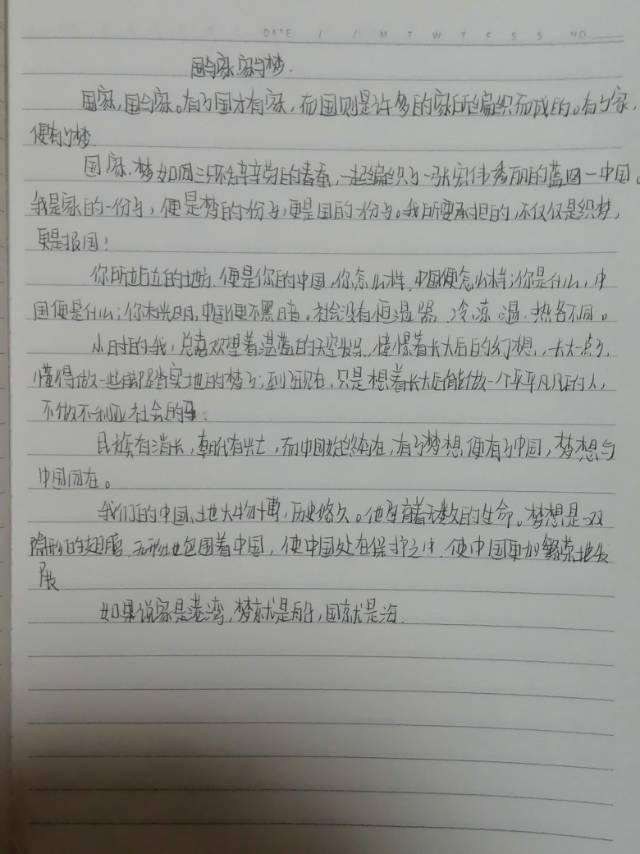 DATE / / M T W T F S S NO.
国与家,家与梦.
国家,国与家。有了国才有家,而国则是许多的家所编织而成的。有了家,
便有了梦.
国、家、梦如同三只不怠辛劳的春蚕,一起编织了一张宏伟秀丽的蓝图一中国。
我是家的一份子,便是梦的一份子,更是国的一份子。我所要承担的,不仅仅是织梦,
更是报国!
你所站立的地方,便是你的中国,你怎么样,中国便怎么样;你是什么,中
国便是什么;你有光明,中国便不黑暗。社会没有恒温器,冷、冻、温、热各不同。
小时的我,总喜欢望着湛蓝的天空发呆,憧憬着长大后的幻想,大一点了,
懂得做一些脚踏实地的梦了;到了现在,只是想着长大后能做一个平平凡凡的人,
不做不利于社会的事.
民族有消长,朝代有兴亡,而中国始终存在,有了梦想便有了中国,梦想与
中国同在。
我们的中国,土地大物博,历史悠久。他孕育着无数的生命。梦想是一双
隐形的翅膀,无形地包围着中国,使中国处在保护之中,使中国更加繁荣地发
展
如果说家是港湾,梦就是船,国就是海.